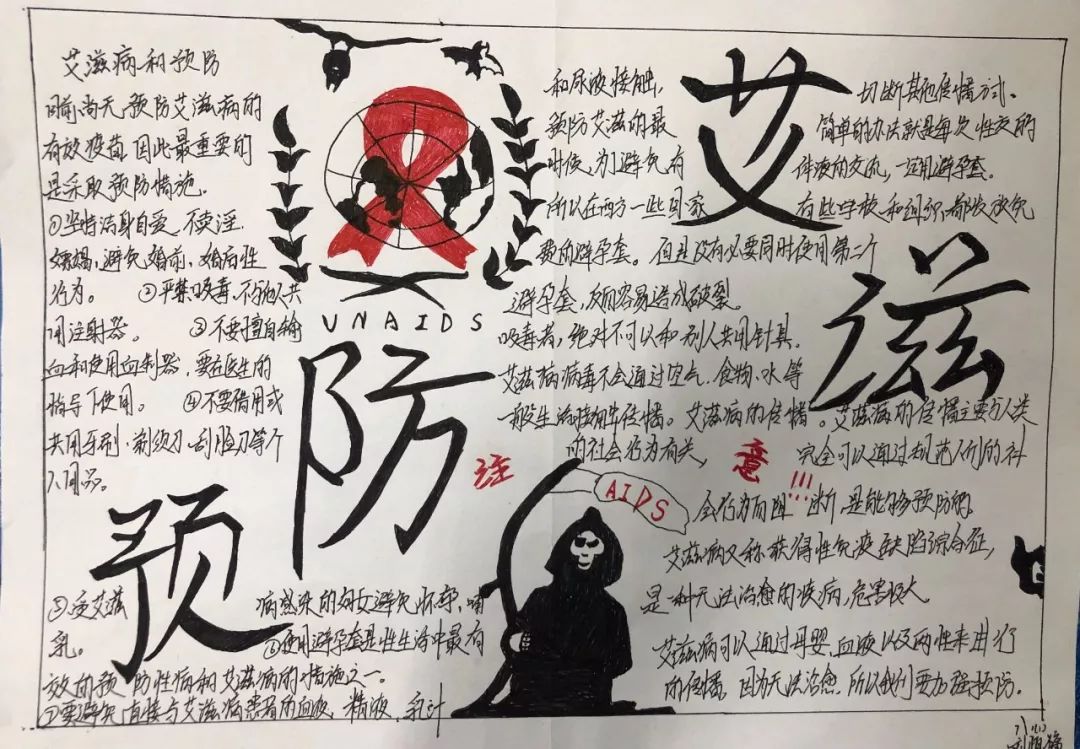 艾滋病和预防
目前尚无预防艾滋病的
有效疫苗，因此最重要的
是采取预防措施.
①坚持洁身自爱，不卖淫.
嫖娼，避免婚前、婚后性
行为。 ②严禁吸毒，不与他人共
用注射器。 ③不要擅自输
血和使用血制器，要在医生的
指导下使用。 ④不要借用或
共用牙刷、剃须刀、刮脸刀等个
人用品。
预
防
⑤受艾滋病感染的妇女避免怀孕、哺
乳。 ⑥使用避孕套是性生活中最有
效的预防性病和艾滋病的措施之一.
⑦要避免直接与艾滋病患者的血液、精液、乳汁
UNAIDS
和尿液接触，切断其他传播方式.
预防艾滋的最简单的办法就是每次性交的
时候，为避免有体液的交流，一定用避孕套.
所以在西方一些国家有些学校和组织，都发放免
费的避孕套。但是没有必要同时使用第二个
避孕套，反而容易造成破裂。
吸毒者，绝对不可以和别人共用针具.
艾滋病病毒不会通过空气、食物、水等
一般生活接触传播。艾滋病的传播。艾滋病的传播主要与人类
的社会行为有关，完全可以通过规范人们的社
会行为而阻断，是能够预防的.
艾滋病又称获得性免疫缺陷综合征，
是一种无法治愈的疾病，危害极大
艾滋病可以通过母婴、血液以及两性来进行
的传播，因为无法治愈，所以我们要加强预防.
艾
滋
注
意!!!
AIDS